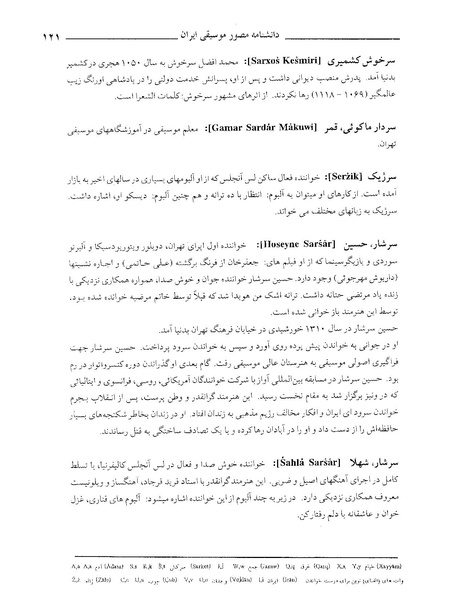 دانشنامه مصور موسیقی ایران ۱۲۱
سرخوش کشمیری [Sarxoš Kešmiri]: محمد افضل سرخوش به سال ۱۰۵۰ هجری درکشمیر
بدنیا آمد. پدرش منصب دیوانی داشت و پس از او، پسرانش خدمت دولتی را در پادشاهی اورنگ زیب
عالمگیر (۱۰۶۹ - ۱۱۱۸) رها نکردند. از اثرهای مشهور سرخوش: کلمات الشعرا است.
سردار ماکوئی، قمر [Gamar Sardár Mákuwi]: معلم موسیقی در آموزشگاههای موسیقی
تهران.
سرژیک [Seržik]: خواننده فعال ساکن لس آنجلس که از او آلبومهای بسیاری در سالهای اخیر به بازار
آمده است. ازکارهای او میتوان به آلبوم: انتظار با ده ترانه و هم چنین آلبوم: دیسکو او، اشاره داشت.
سرژیک به زبانهای مختلف می خواند.
سرشار، حسین [Hoseyne Saršár]: خواننده اول اپرای تهران، دوبلور ویتوریودسیکا و آلبرتو
سوردی و بازیگرسینما که از او فیلم های: جعفرخان از فرنگ برگشته (علی حاتمی) و اجاره نشینها
(داریوش مهرجوئی) وجود دارد. حسین سرشار خواننده جوان و خوش صدا، همواره همکاری نزدیکی با
زنده یاد مرتضی حنانه داشت. ترانه اشک من هویدا شد که قبلاً توسط خانم مرضیه خوانده شده بود،
توسط این هنرمند باز خوانی شده است.
حسین سرشار در سال ۱۳۱۰ خورشیدی در خیابان فرهنگ تهران بدنیا آمد.
او در جوانی به خواندن پیش پرده روی آورد و سپس به خواندن سرود پرداخت. حسین سرشار جهت
فراگیری اصولی موسیقی به هنرستان عالی موسیقی رفت. گام بعدی او گذراندن دوره کنسرواتوار در رم
بود. حسین سرشار در مسابقه بین‌المللی آواز با شرکت خوانندگان آمریکائی، روسی، فرانسوی و ایتالیائی
که در ونیز برگزار شد به مقام نخست رسید. این هنرمند گرانقدر و وطن پرست، پس از انقلاب بجرم
خواندن سرود ای ایران و افکار مخالف رژیم مذهبی به زندان افتاد. او در زندان بخاطر شکنجه‌های بسیار
حافظه‌اش را از دست داد و او را در آبادان رها کرده و با یک تصادف ساختگی به قتل رساندند.
سرشار، شهلا [Šahlá Saršár]: خواننده خوش صدا و فعال در لس آنجلس کالیفرنیا، با تسلط
کامل در اجرای آهنگهای اصیل و ضربی. این هنرمند گرانقدر با استاد فرید فرجاد، آهنگساز و ویلونیست
معروف همکاری نزدیکی دارد. در زیر به چند آلبوم از این خواننده اشاره میشود: آلبوم های قناری، غزل
خوان و عاشقانه با دلم رفتارکن.